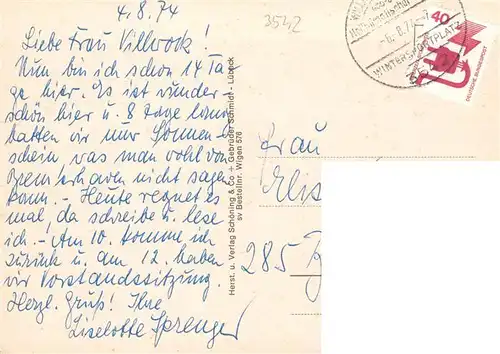 4.8.74
Liebe Frau Villwock!
Nun bin ich schon 14 Ta-
ge hier. Es ist wunder-
schön hier u. 8 Tage lang
hatten wir nur Sonnen-
schein was man wohl von
Bremerhaven nicht sagen
kann. - Heute regnet es
mal, da schreibe u. lese
ich. - Am 10. komme ich
zurück u. am 12. haben
wir Vorstandssitzung.
Herzl. Gruß! Ihre
Liselotte Sprenger
Herst. u. Verlag Schöning & Co + Gebrüder Schmidt - Lübeck
sv Bestellnr. Wigen 576
3542
-6.8.74
WINTERSPORTPLATZ
40
DEUTSCHE BUNDESPOST
Frau
Elis
285